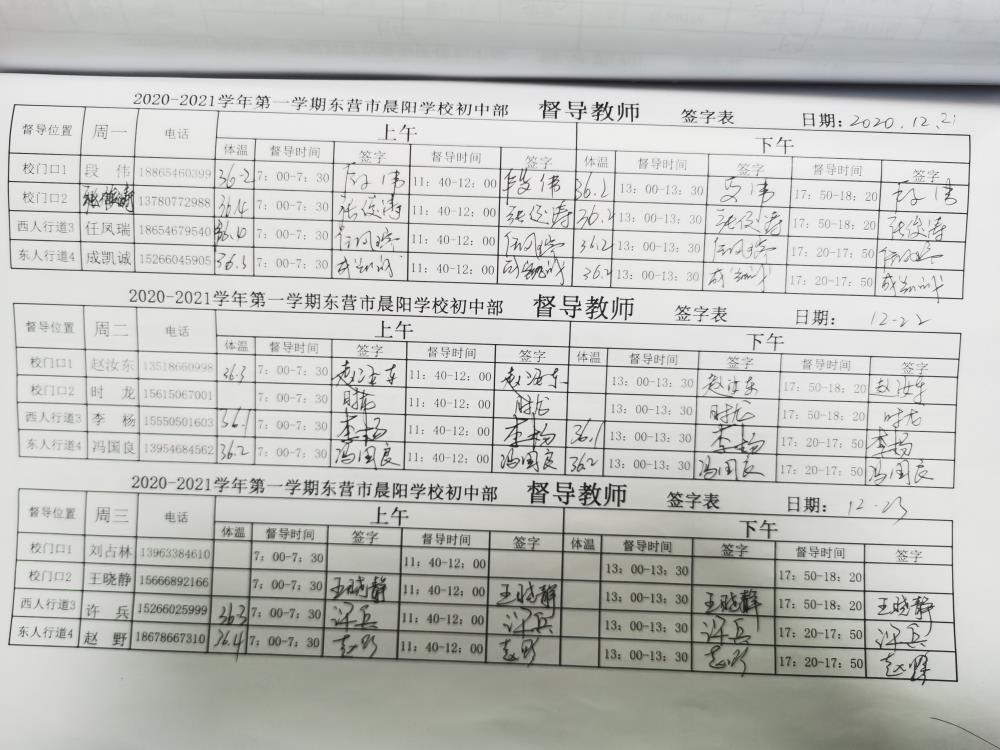 2020-2021学年第一学期东营市晨阳学校初中部 督导教师 签字表 日期：2020.12.21
督导位置 周一 电话 上午 下午
体温 督导时间 签字 督导时间 签字 体温 督导时间 签字 督导时间 签字
校门口1 段 伟 18865460399 36.2 7：00-7：30 段伟 11：40-12：00 段伟 36.2 13：00-13：30 段伟 17：50-18：20 段伟
校门口2 张俊涛 13780772988 36.4 7：00-7：30 张俊涛 11：40-12：00 张俊涛 36.2 13：00-13：30 张俊涛 17：50-18：20 张俊涛
西人行道3 任凤瑞 18654679540 36.0 7：00-7：30 任凤瑞 11：40-12：00 任凤瑞 36.2 13：00-13：30 任凤瑞 17：20-17：50 任凤瑞
东人行道4 成凯诚 15266045905 36.3 7：00-7：30 成凯诚 11：40-12：00 成凯诚 36.2 13：00-13：30 成凯诚 17：20-17：50 成凯诚
2020-2021学年第一学期东营市晨阳学校初中部 督导教师 签字表 日期： 12-22
督导位置 周二 电话 上午 下午
体温 督导时间 签字 督导时间 签字 体温 督导时间 签字 督导时间 签字
校门口1 赵汝东 13518660998 36.3 7：00-7：30 赵汝东 11：40-12：00 赵汝东 13：00-13：30 赵汝东 17：50-18：20 赵汝东
校门口2 时 龙 15615067001 7：00-7：30 时龙 11：40-12：00 时龙 13：00-13：30 时龙 17：50-18：20 时龙
西人行道3 李 杨 15550501603 36.1 7：00-7：30 李杨 11：40-12：00 李杨 36.1 13：00-13：30 李杨 17：20-17：50 李杨
东人行道4 冯国良 13954684562 36.2 7：00-7：30 冯国良 11：40-12：00 冯国良 36.2 13：00-13：30 冯国良 17：20-17：50 冯国良
2020-2021学年第一学期东营市晨阳学校初中部 督导教师 签字表 日期： 12-23
督导位置 周三 电话 上午 下午
体温 督导时间 签字 督导时间 签字 体温 督导时间 签字 督导时间 签字
校门口1 刘占林 13963384610 7：00-7：30 11：40-12：00 13：00-13：30 17：50-18：20
校门口2 王晓静 15666892166 7：00-7：30 王晓静 11：40-12：00 王晓静 13：00-13：30 王晓静 17：50-18：20 王晓静
西人行道3 许 兵 15266025999 36.3 7：00-7：30 许兵 11：40-12：00 许兵 13：00-13：30 许兵 17：20-17：50 许兵
东人行道4 赵 野 18678667310 36.4 7：00-7：30 赵野 11：40-12：00 赵野 13：00-13：30 赵野 17：20-17：50 赵野